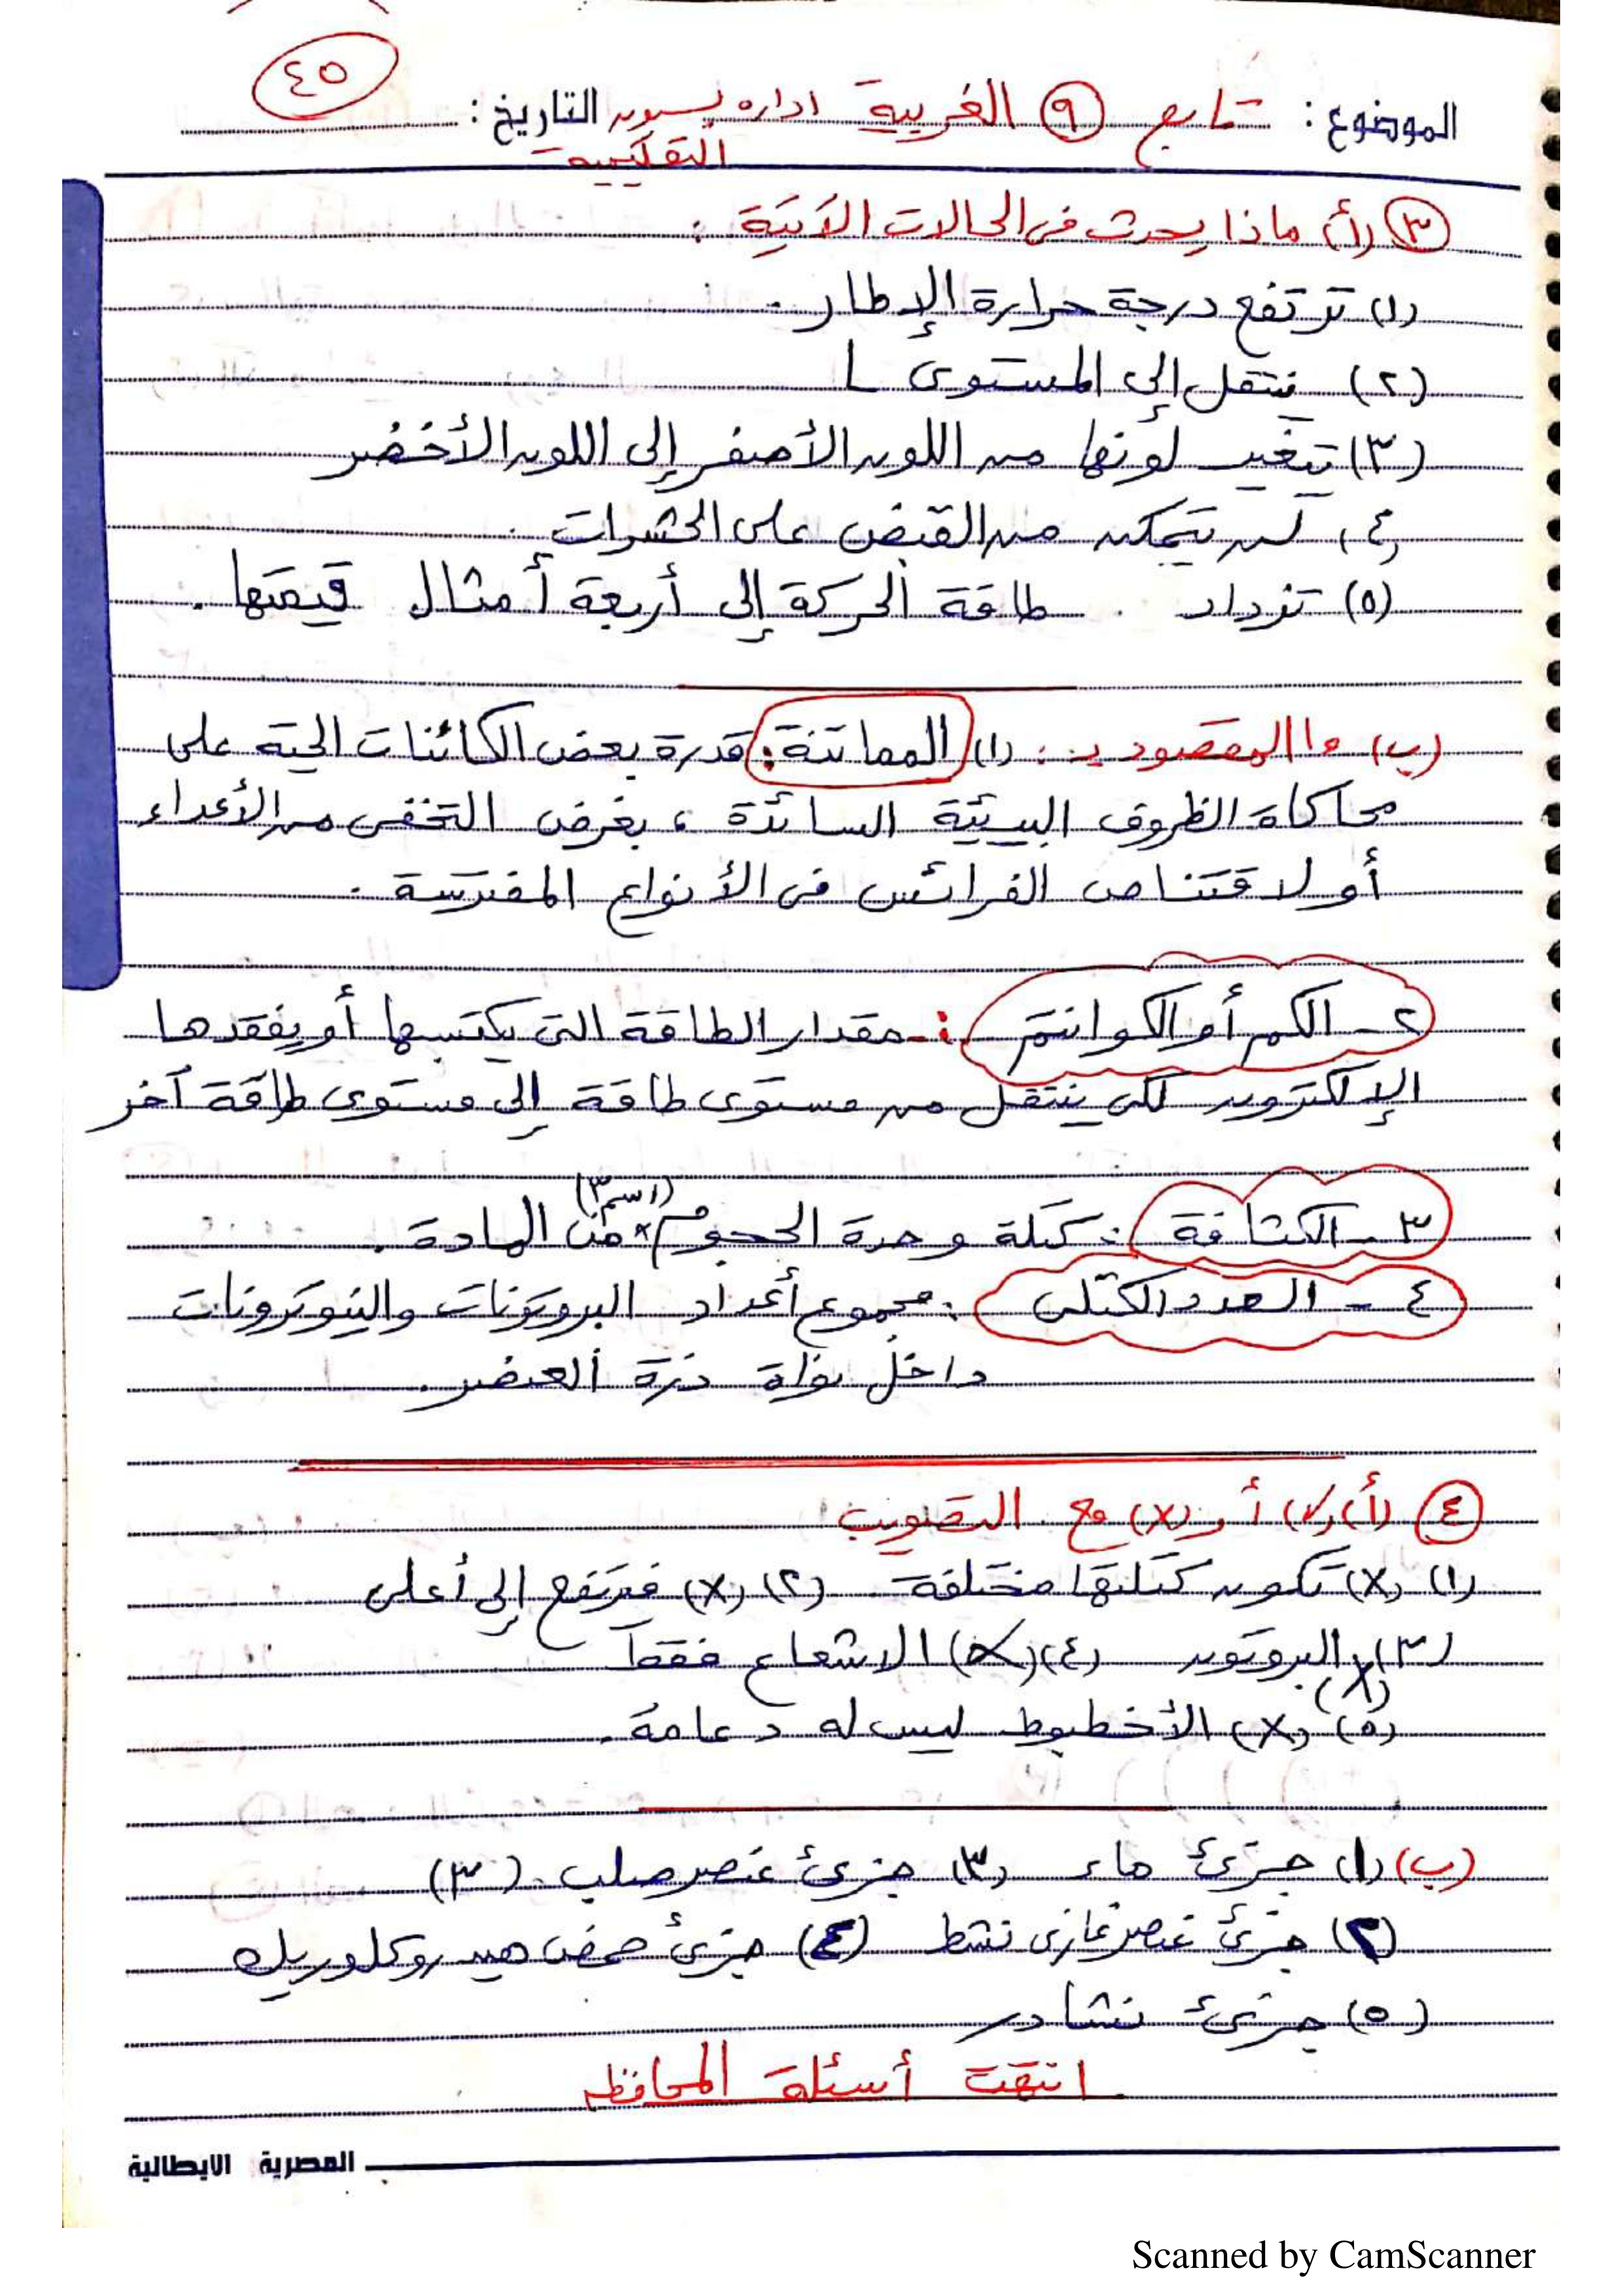 ٤٥
الموضوع: تابع ٩ الغربية ادارة بسيون التاريخ:
التعليمية
٣ (أ) ماذا يحدث فى الحالات الآتية :
(١) ترتفع درجة حرارة الإطار.
(٢) ينتقل إلى المستوى L
(٣) تتغير لونها من اللون الأصفر إلى اللون الأخضر
(٤) لن يتمكن من القبض على الحشرات.
(٥) تزداد طاقة الحركة إلى أربعة أمثال قيمتها.
(ب) ما المقصود بـ : (١) المماتنة: قدرة بعض الكائنات الحية على
محاكاة الظروف البيئية السائدة ، بغرض التخفى من الأعداء
أو لاقتناص الفرائس فى الأنواع المفترسة.
٢ـ الكم أو الكوانتم :ـ مقدار الطاقة التى يكتسبها أو يفقدها
الإلكترون لكى ينتقل من مستوى طاقة إلى مستوى طاقة آخر
٣ـ الكثافة : كتلة وحدة الحجوم (١سم٣) من المادة.
٤ـ العدد الكتلى : مجموع أعداد البروتونات والنيوترونات
داخل نواة ذرة العنصر.
٤ (أ) (✓) أو (x) مع التصويب
(١) (x) تكون كتلتها مختلفة (٢) (x) فيرتفع إلى أعلى
(٣) (x) البروتون (٤) (x) الاشعاع فقط
(٥) (x) الأخطبوط ليس له دعامة.
(ب) (١) جزئ ماء (٣) جزئ عنصر صلب. (٣)
(٢) جزئ عنصر غازى نشط (٤) جزئ حمض هيدروكلوريك
(٥) جزئ نشادر
انتهت أسئلة المحافظ
المصرية الايطالية
Scanned by CamScanner